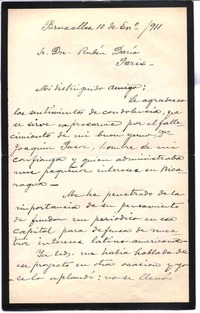 Bruxelles 10 de Enº /911
Sr. Don Rubén Darío
Paris.
Mi distinguido Amigo:
Le agradezco
los sentimientos de condolencia, que
se sirve expresarme por el falle
cimiento de mi buen yerno Dn
Joaquin hombre de mi
confianza y quien administraba
mis pequeños intereses en Nica
ragua.
Me he penetrado de la
importancia de su pensamiento
de fundar un periódico en esa
capital para defensa de nues
tros intereses latino-americanos.
Ya Ud. me había hablado de
ese proyecto en otra ocasion y yo
se lo aplaudí: no se llevó